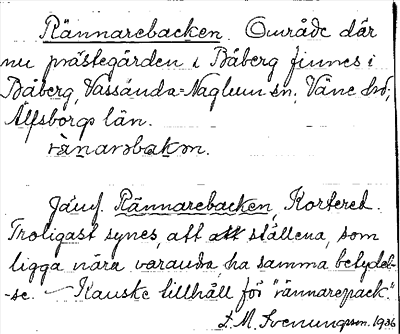 Rännarebacken. Område där
nu prästegården i Båberg finnes i
Båberg, Vassända-Naglum sn, Väne hd;
Älfsborgs län.
rànarsbakɔn.
Jämf. Rännarebacken, Korsered.
Troligast synes, att att ställena, som
ligga nära varandra, ha samma betydel-
-se. - Kanske tillhåll för "rännarepack".
L. M. Svenungsson. 1936